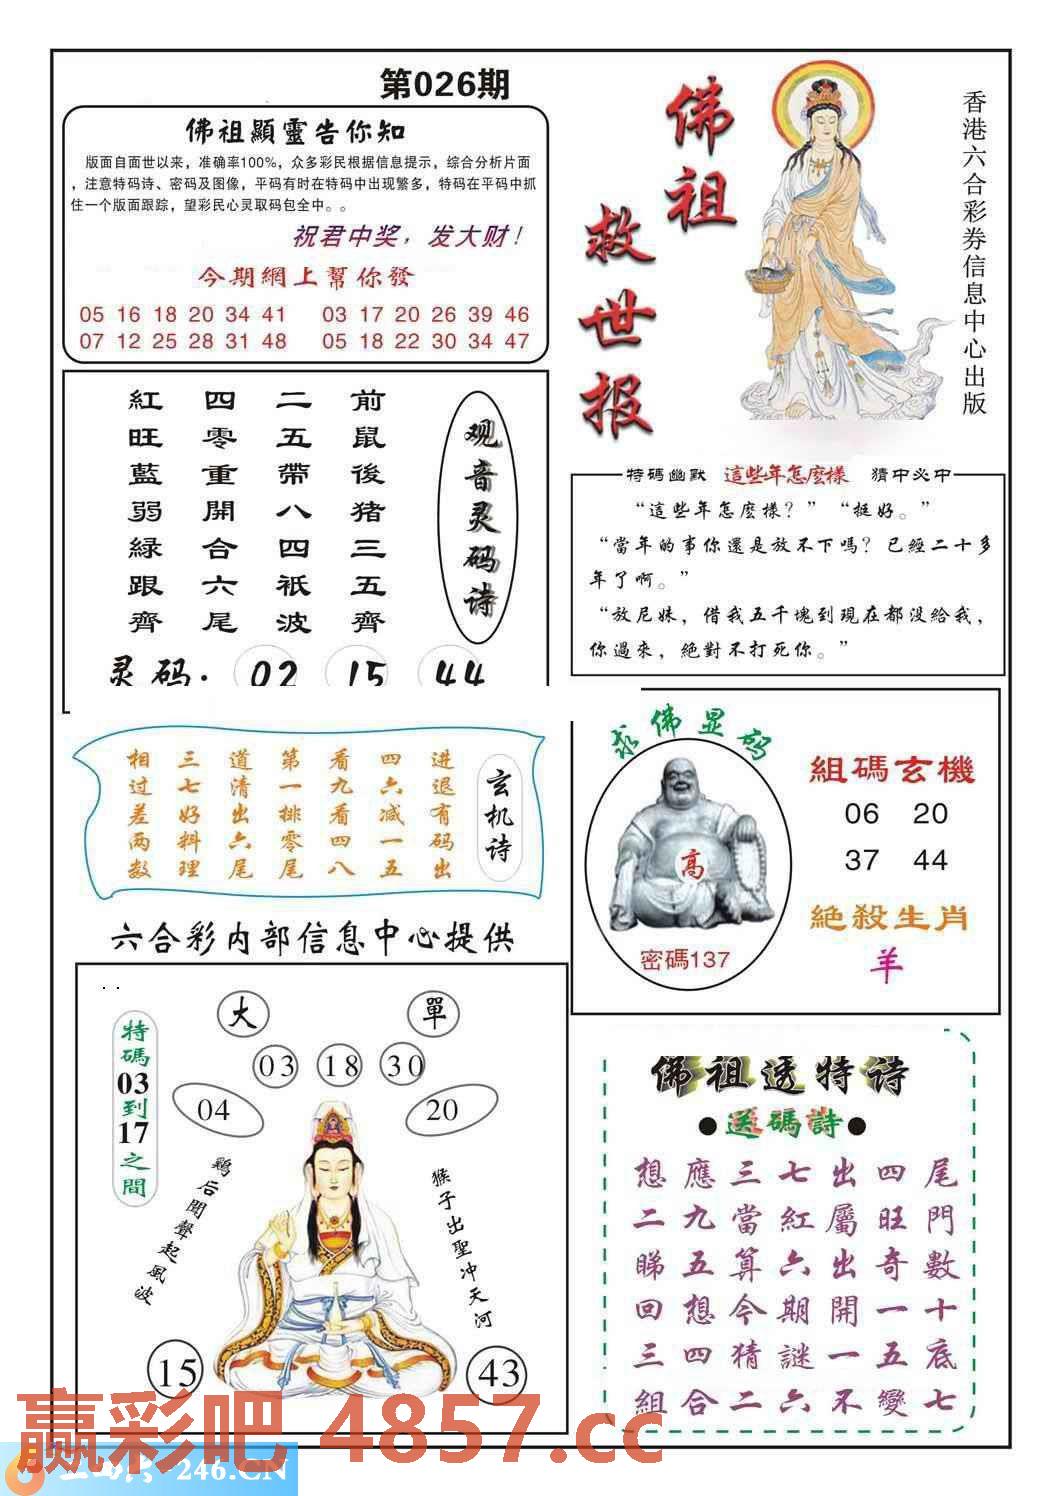 第026期
佛祖顯靈告你知
版面自面世以来，准确率100%，众多彩民根据信息提示，综合分析片面
，注意特码诗、密码及图像，平码有时在特码中出现繁多，特码在平码中抓
住一个版面跟踪，望彩民心灵取码包全中。。
祝君中奖，发大财！
今期網上幫你發
05 16 18 20 34 41 03 17 20 26 39 46
07 12 25 28 31 48 05 18 22 30 34 47
佛祖
救世报
香港六合彩券信息中心出版
观音灵码诗
前鼠後猪三五齊
二五帶八四衹波
四零重開合六尾
紅旺藍弱緑跟齊
灵码: 02 15 44
特碼幽默 這些年怎麽樣 猜中必中
“這些年怎麽樣？” “挺好。”
“當年的事你還是放不下嗎？已經二十多
年了啊。”
“放尼妹，借我五千塊到現在都没給我，
你過來，絶對不打死你。”
玄机诗
进退有码出
四六减一五
看九看四八
第一排零尾
道清出六尾
三七好料理
相过差两数
求佛显码
高
密碼137
組碼玄機
06 20
37 44
絶殺生肖
羊
六合彩内部信息中心提供
特碼03到17之間
大 單
03 18 30
04 20
鷄后聞聲起風波
猴子出聖冲天河
15 43
佛祖透特诗
●送碼詩●
想應三七出四尾
二九當紅屬旺門
睇五算六出奇數
回想今期開一十
三四猜謎一五底
組合二六不變七
赢彩吧 4857.cc
246.CN